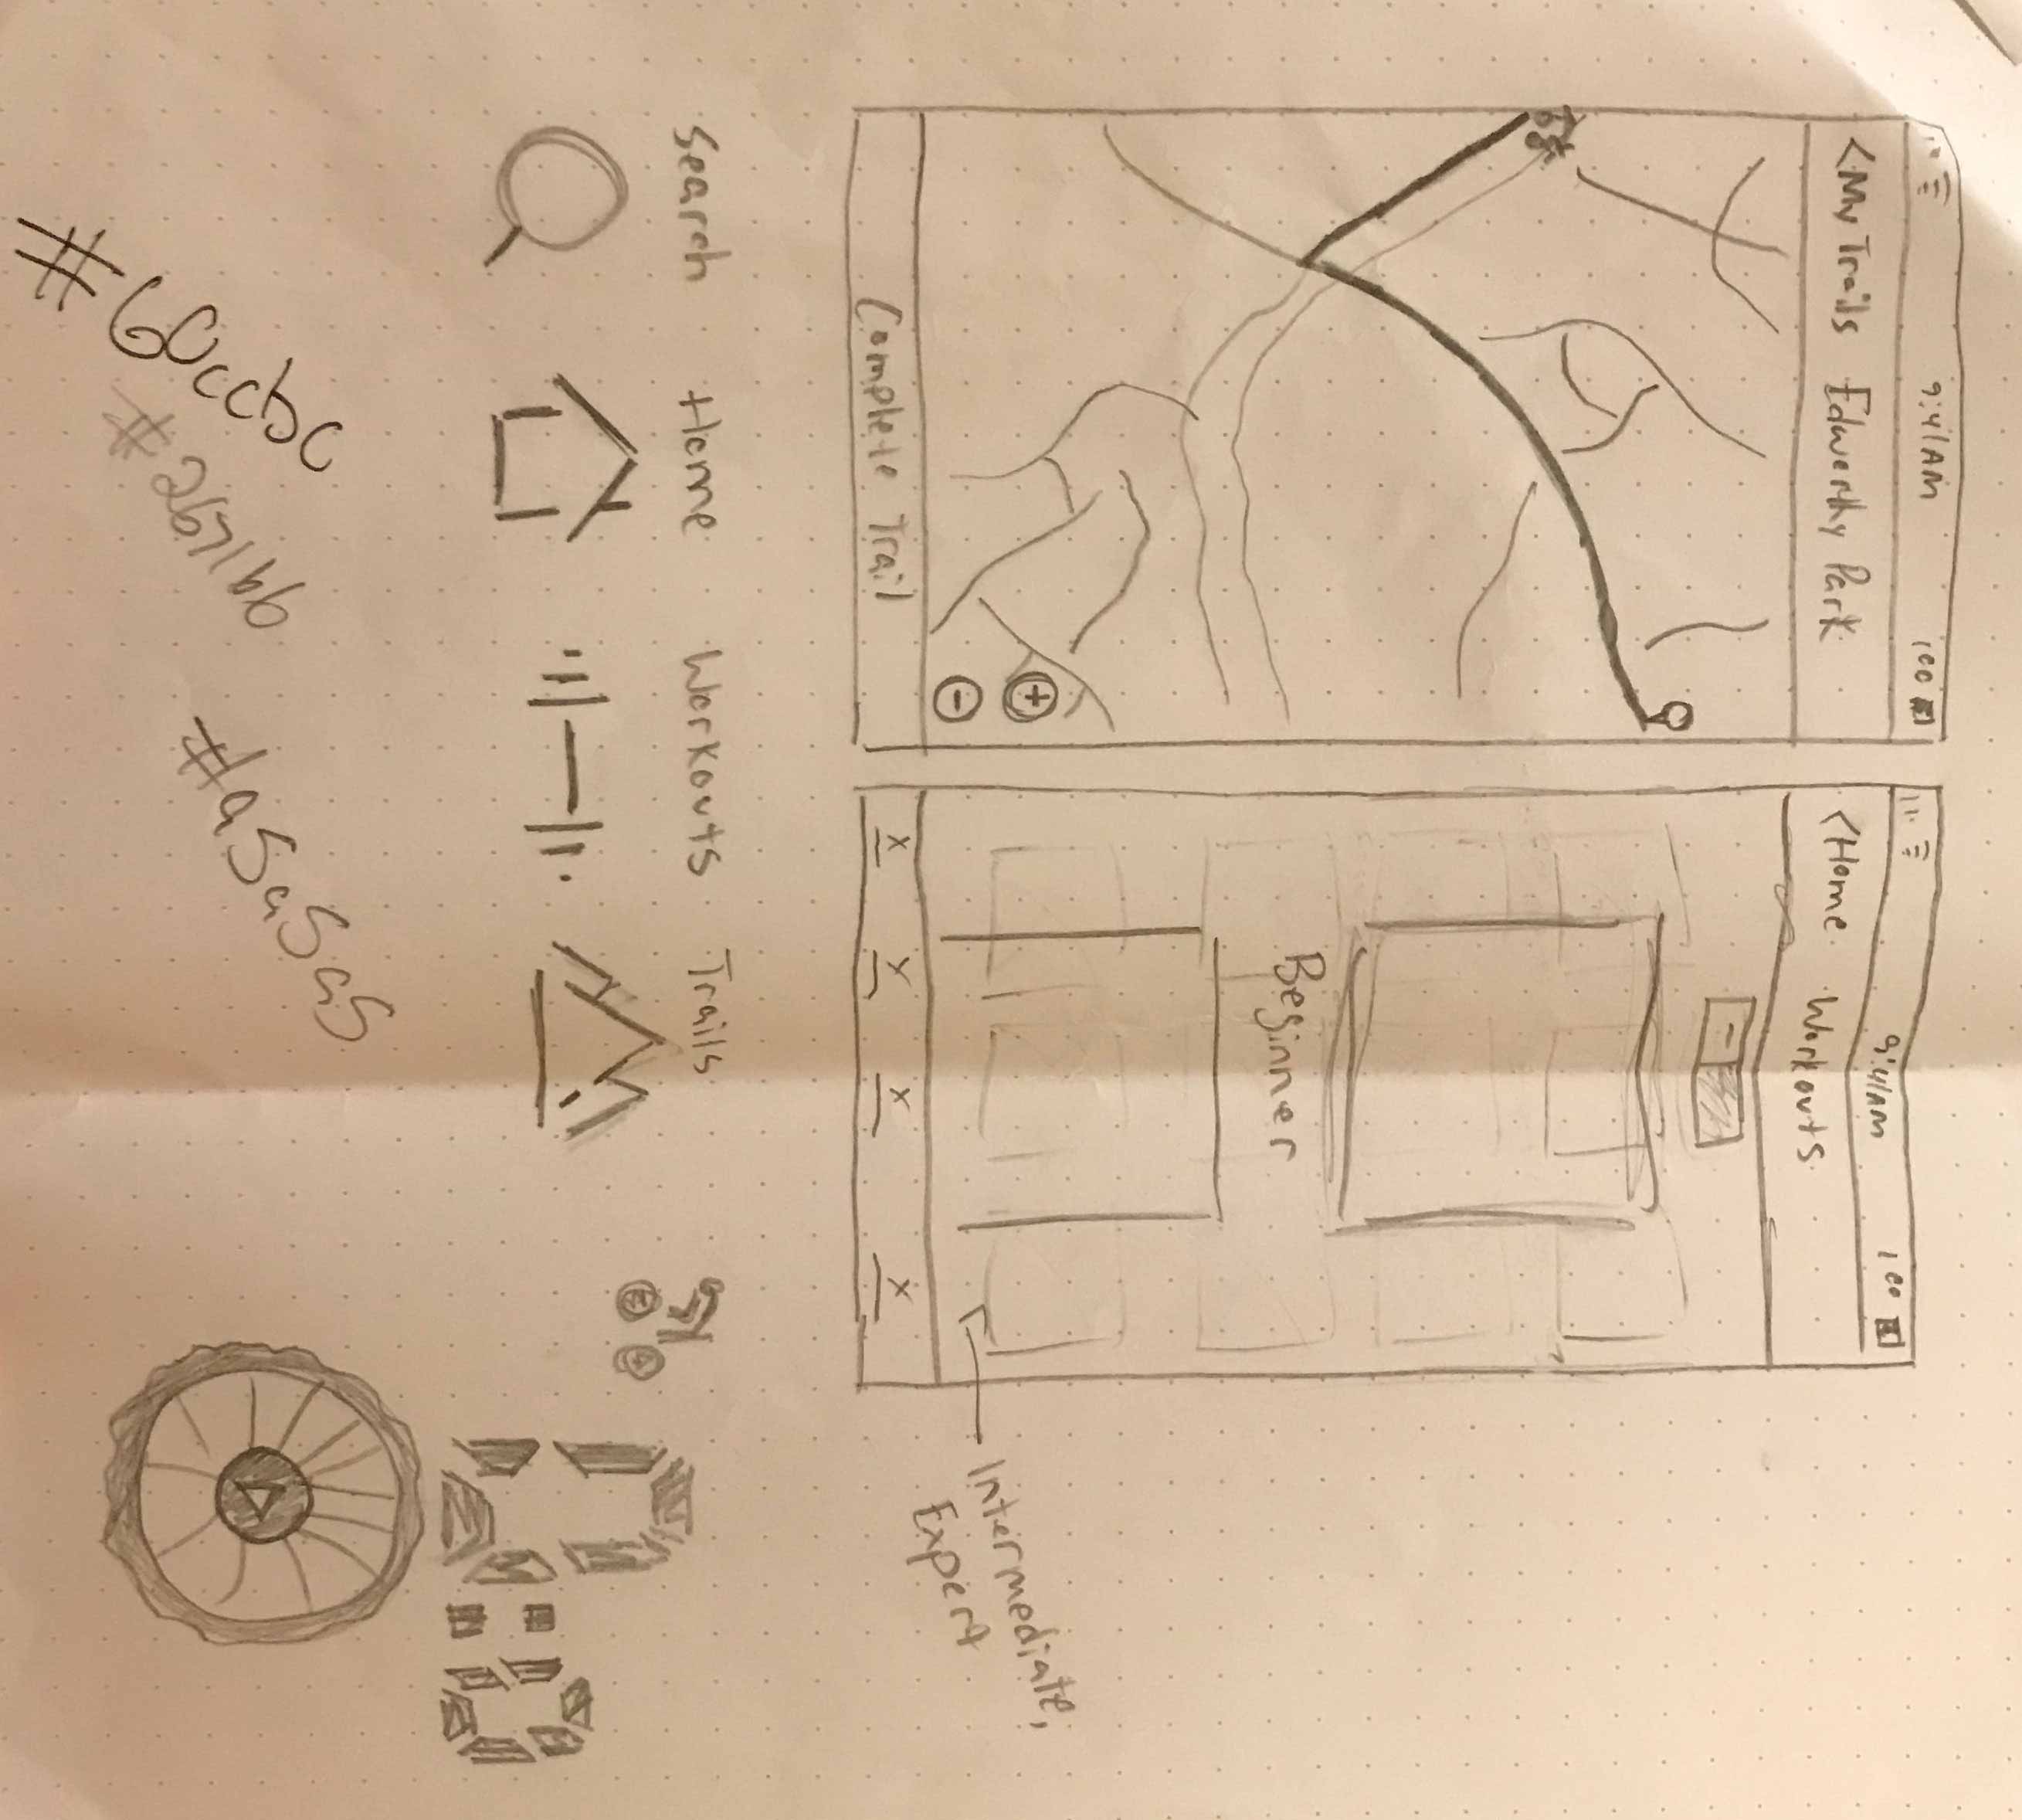 9:41AM 100
<My Trails Edworthy Park
+
-
Complete Trail
9:41AM 100
<Home Workouts
Beginner
x x x x
Intermediate,
Expert
Search Home Workouts Trails
#60ccbc
#2671bb
#a5a5a5